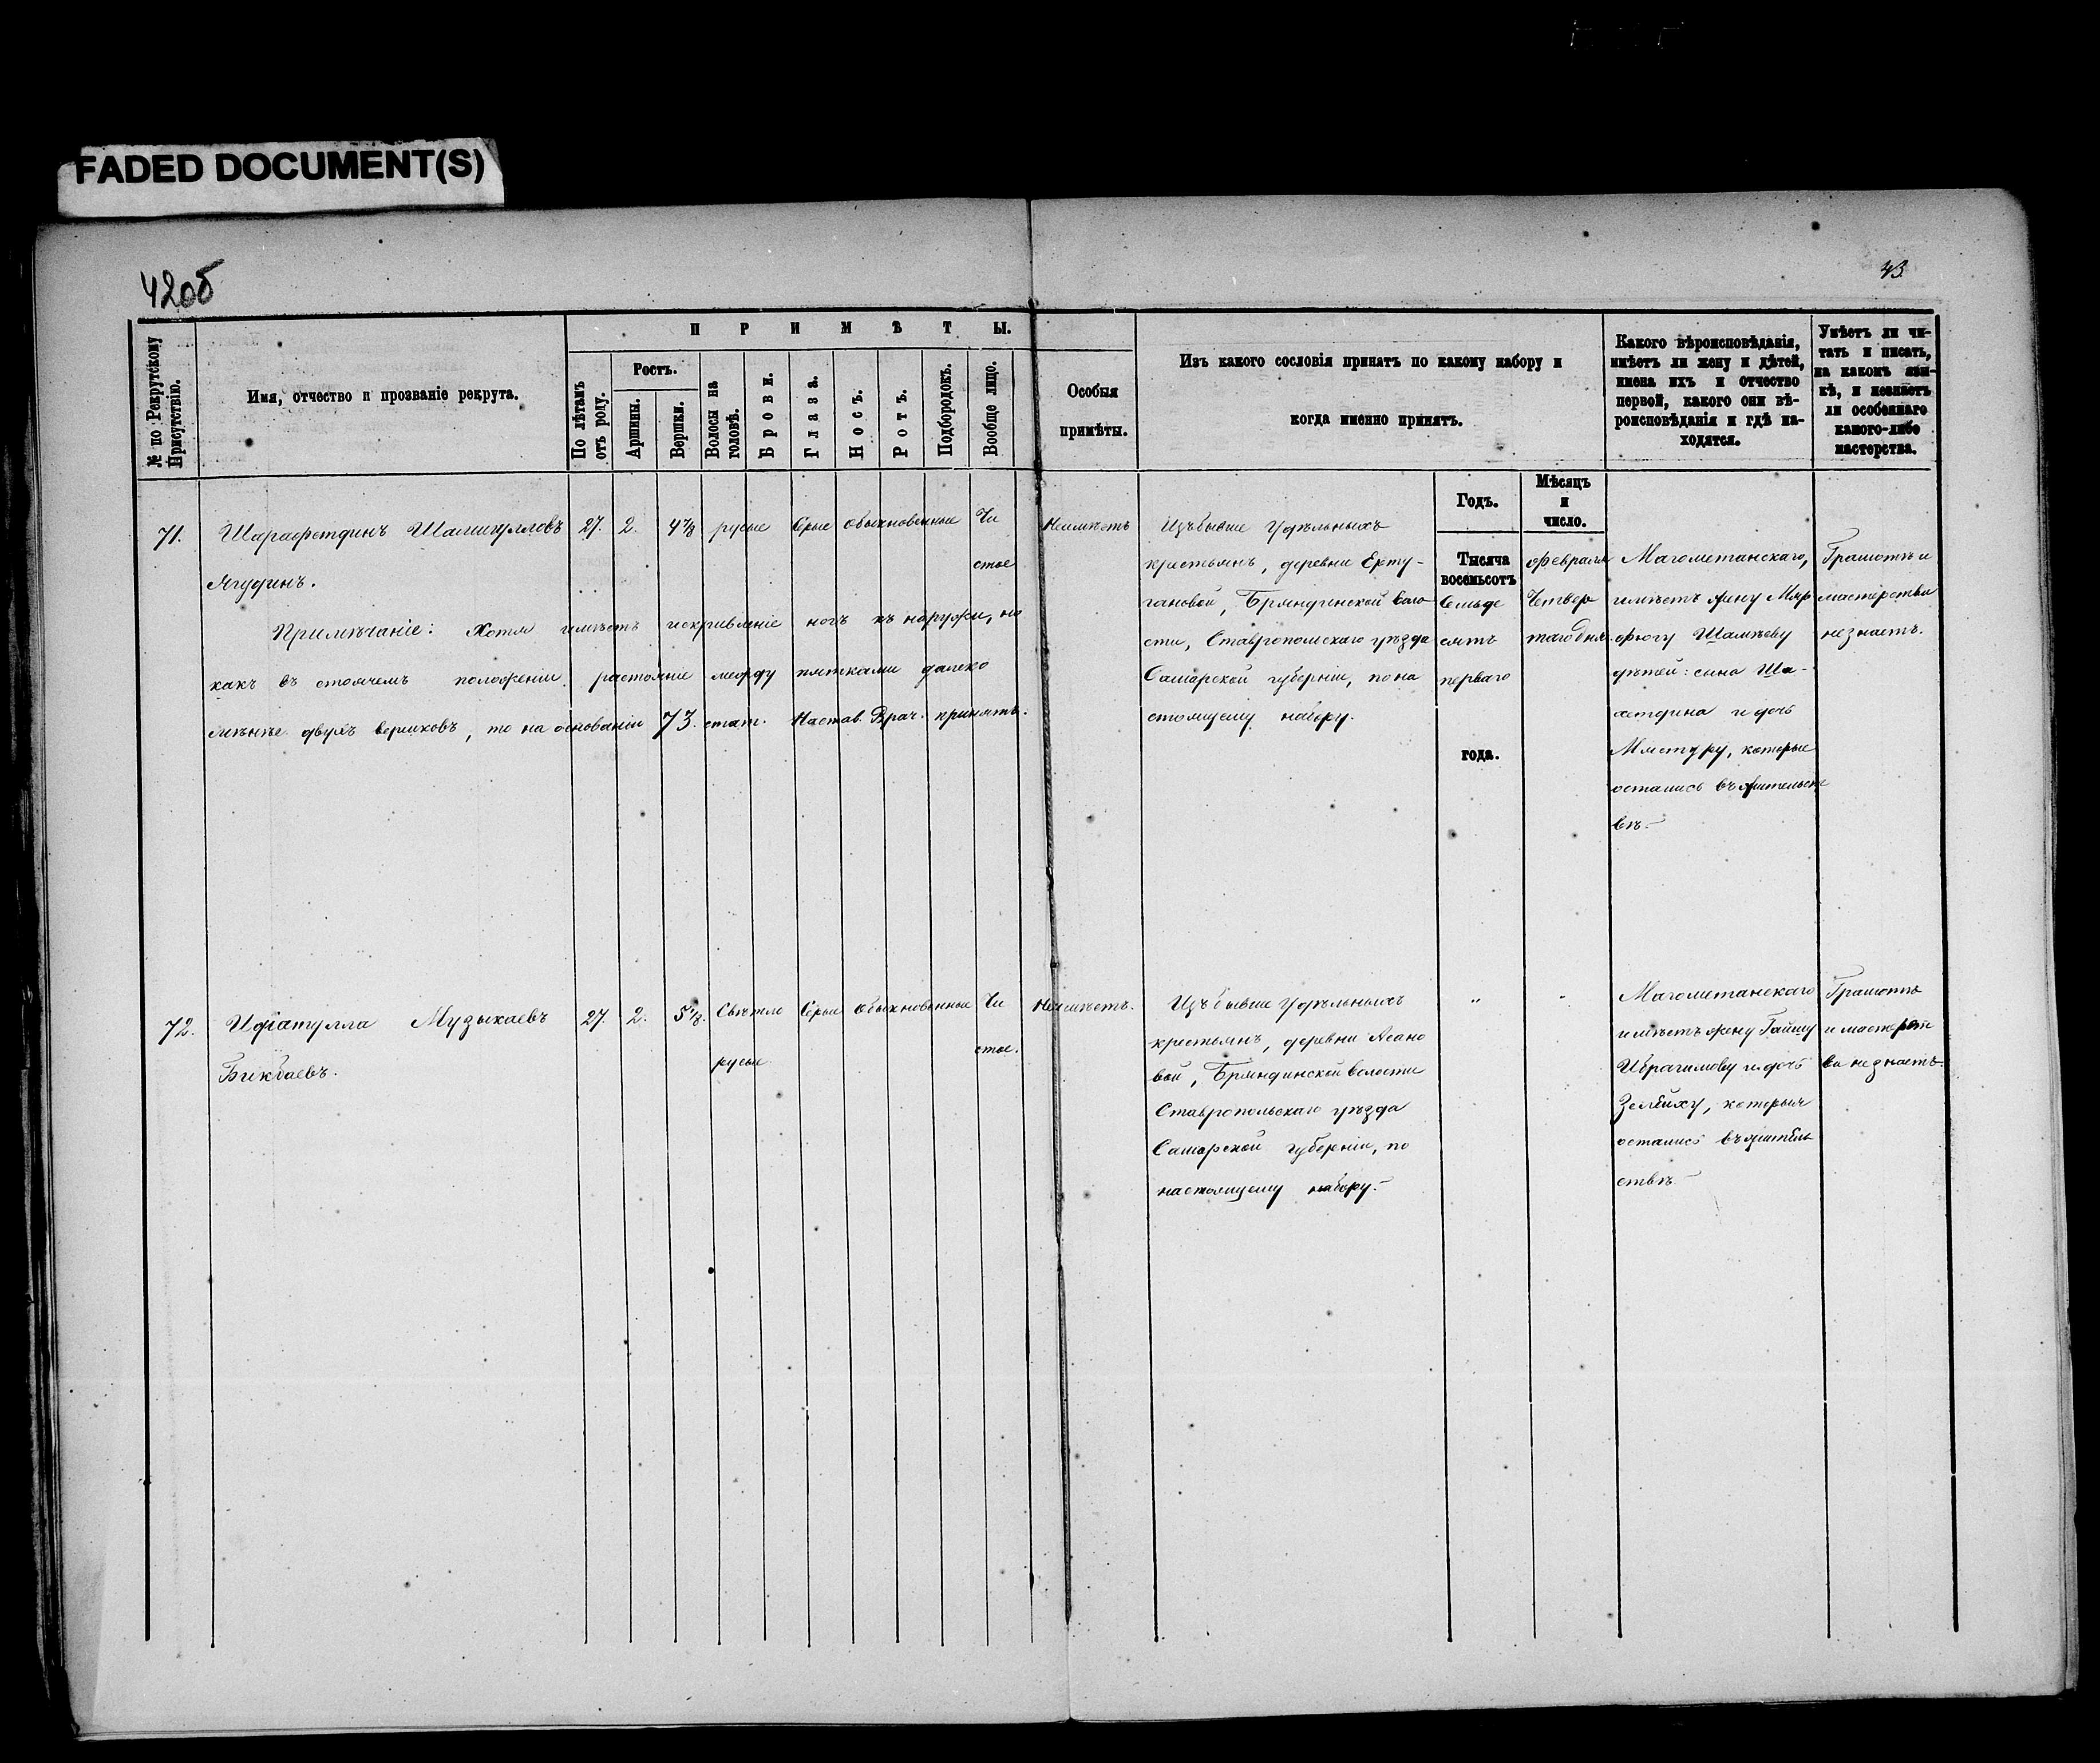 FADED DOCUMENT(S)
42об
43
№ по Рекрутскому Присутствію.
Имя, отчество и прозваніе рекрута.
ПРИМѢТЫ.
По лѣтамъ отъ роду.
Ростъ.
Аршины.
Вершки.
Волосы на головѣ.
Брови.
Глаза.
Носъ.
Ротъ.
Подбородокъ.
Вообще лицо.
Особыя
примѣты.
Изъ какого сословія принятъ по какому набору и
когда именно принятъ.
Какого вѣроисповѣданія,
имѣетъ ли жену и дѣтей,
имена ихъ и отчество
первой, какого они вѣ-
роисповѣданія и гдѣ на-
ходятся.
Умѣетъ ли чи-
тать и писать,
на какомъ язы-
кѣ, и незнаетъ
ли особеннаго
какого-либо
мастерства.
Годъ.
Мѣсяцъ
и
число.
71.
Шарафетдинъ
Ягудинъ.
27. 2. 4 7/8 русые Серые обыкновенные Чи
стое
Примѣчаніе: Хотя имѣетъ искривленіе ногъ къ наружи, но
какъ въ стоячемъ положеніи растояніе между пятками далеко
менѣе двухъ вершковъ, то на основаніи 73. стат. Настав. Врач. принятъ.
Неимѣетъ
Изъ бывше Удѣльныхъ
крестьянъ, деревни Ерту-
гановой, Бряндинской воло
сти, Ставропольскаго уѣзда
Самарской губерніи, по на
стоящему набору.
Тысяча
восемьсотъ
Семьде
сятъ
перваго
года.
Февраля
Четвер
таго дня
Магометанскаго,
имѣетъ жену Мяр
фюгу Шамѣеву
дѣтей: сына Ша-
хетдина и дочь
которые
остались въ жительст
вѣ.-
Грамотѣ и
мастерства
незнаетъ.
72.
Идіатулла Музыкаевъ
Бикбаевъ.
27. 2. 5 1/8. Свѣтло Серые обыкновенные Чи
русые
стое.
Неимѣетъ.
Изъ бывше Удѣльныхъ
крестьянъ, деревни Асано
вой, Бряндинской волости
Ставропольскаго уѣзда
Самарской губерніи, по
настоящему набору.-
" "
Магометанскаго
имѣетъ жену Гайшу
Ибрагимову и дочь
Зелбиху, которыя
остались въ житель
ствѣ.-
Грамотѣ
и мастерст
ва незнаетъ.